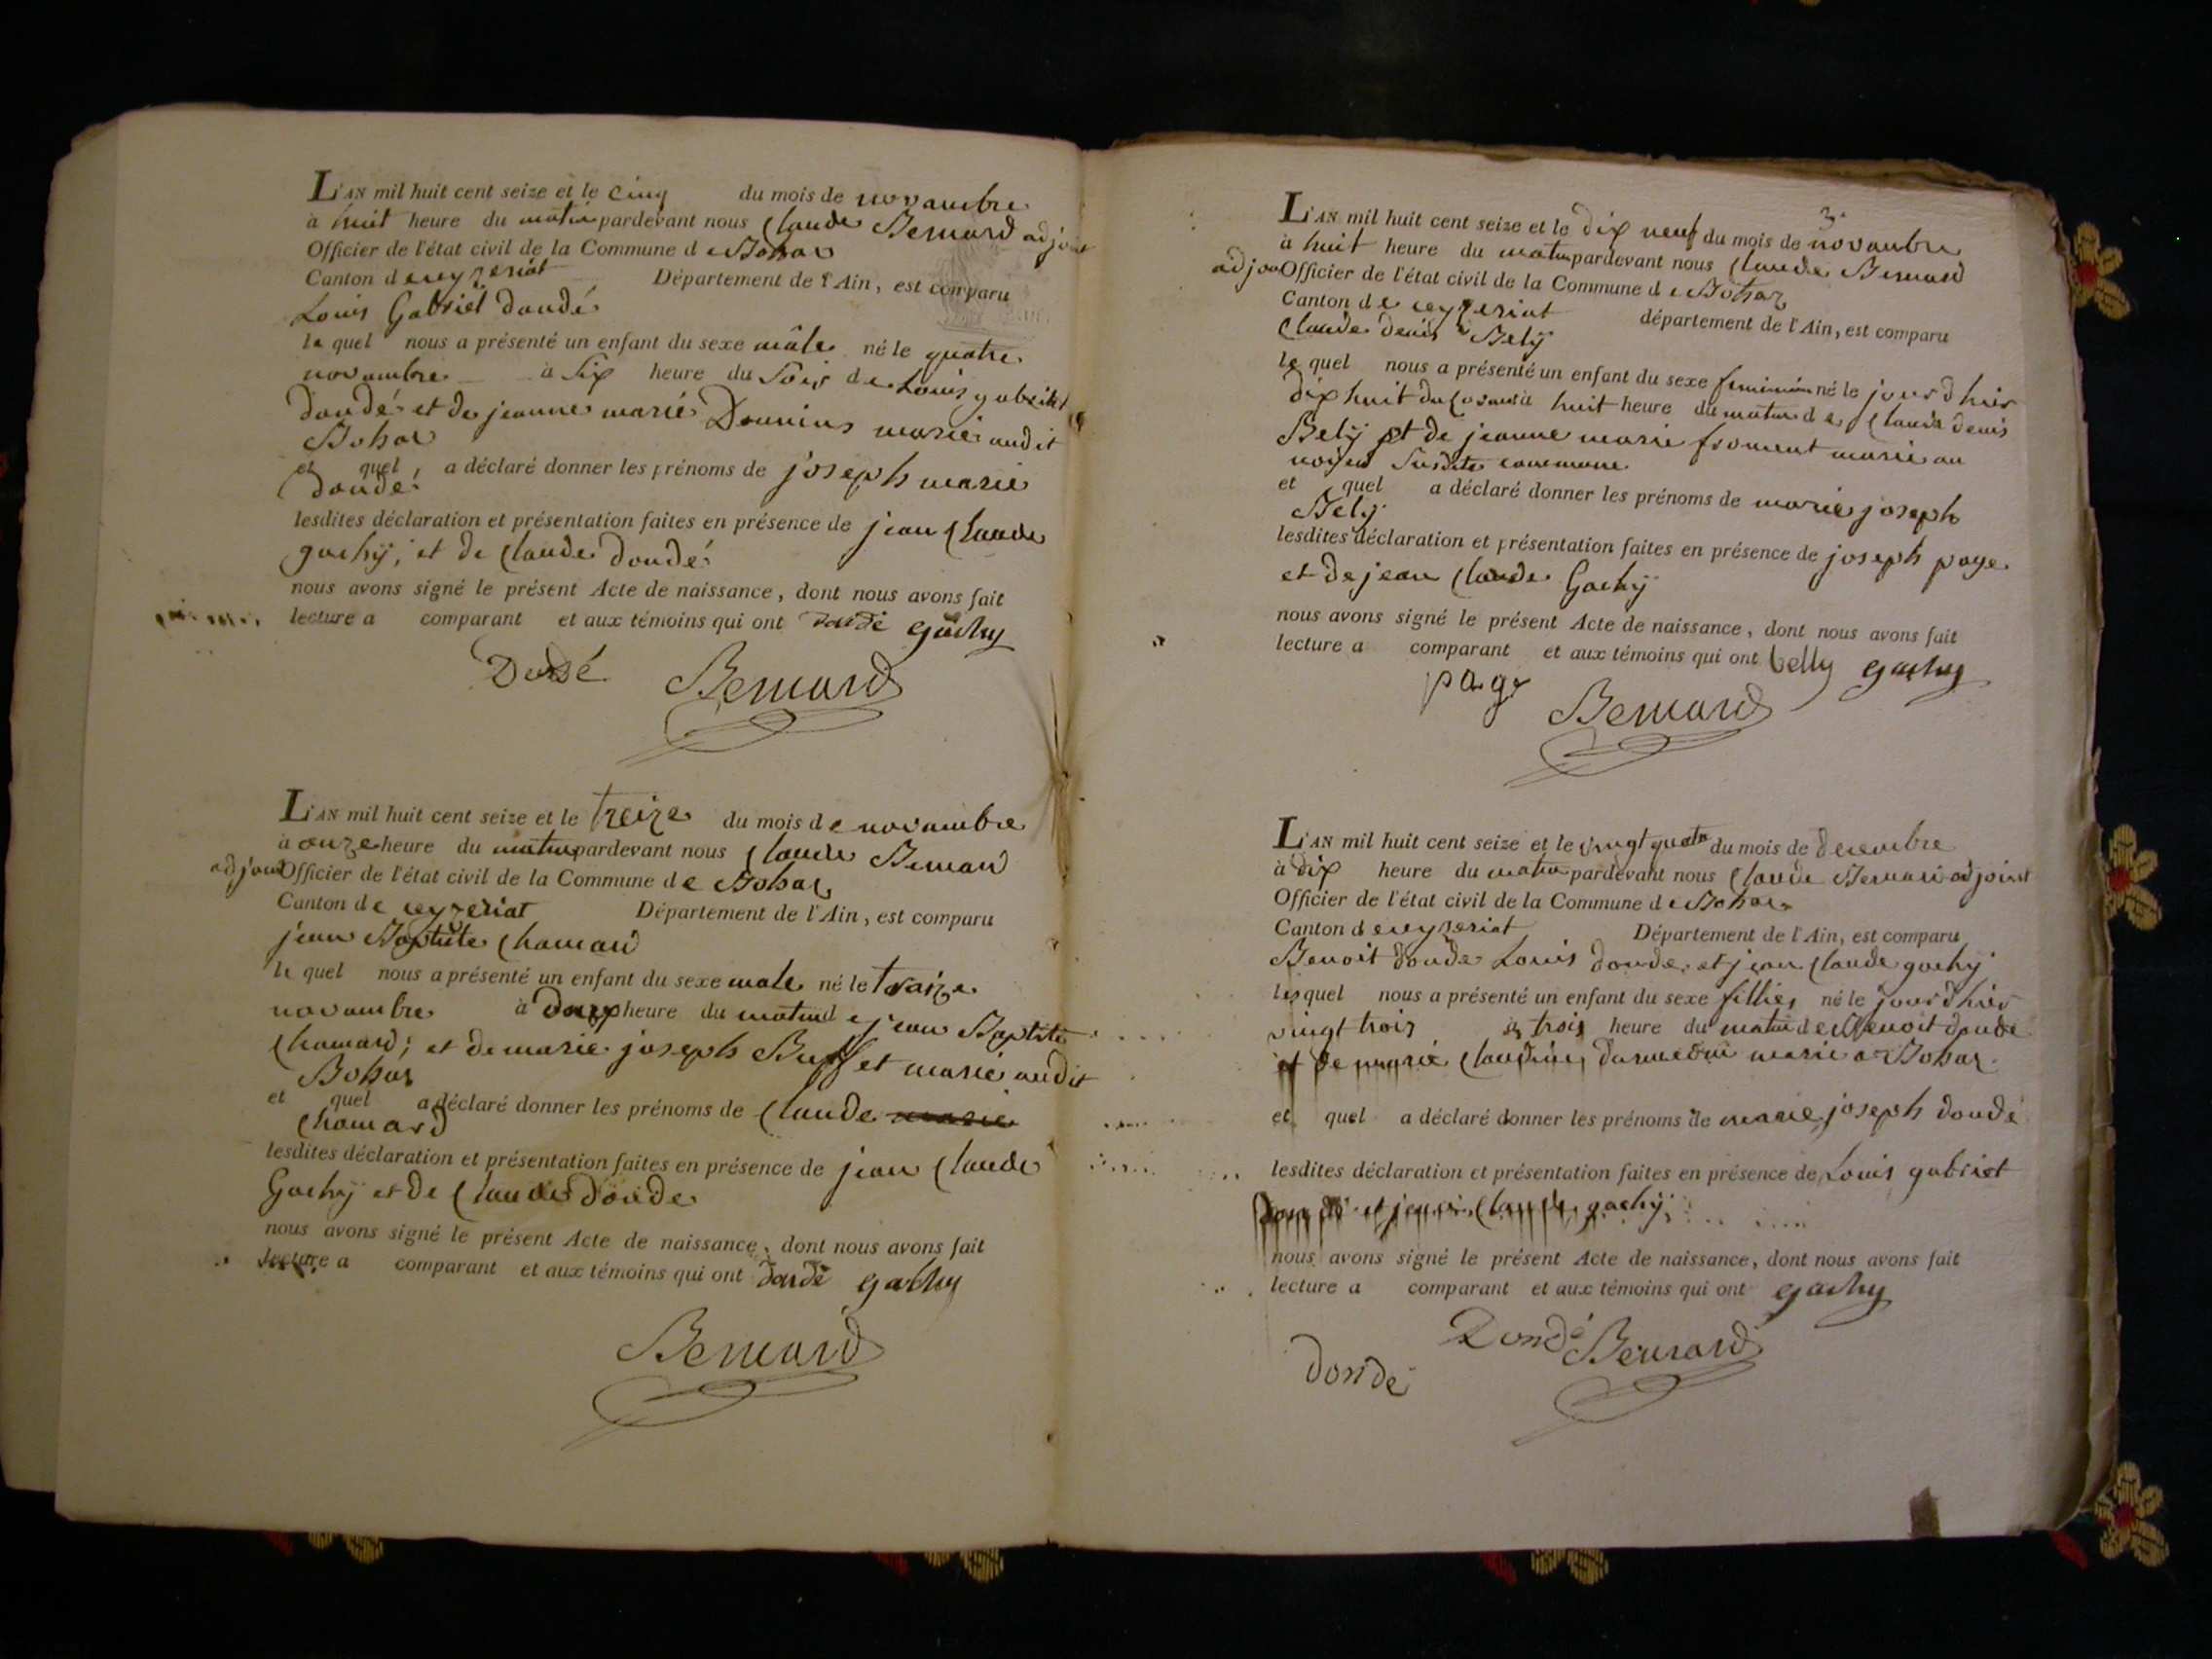 L'AN mil huit cent seize et le cinq du mois de novambre
à huit heure du matin pardevant nous Claude Bernard adjoint
Officier de l'état civil de la Commune de Bohas
Canton de ceyzeriat Département de l'Ain, est comparu
Louis Gabriel dondé
le quel nous a présenté un enfant du sexe mâle né le quatre
novambre à Six heure du Soir de Louis gabriel
dondé et de jeanne marie marié audit
Bohas
et quel a déclaré donner les prénoms de joseph marie
dondé
lesdites déclaration et présentation faites en présence de jean Claude
gachÿ, et de Claude dondé
nous avons signé le présent Acte de naissance, dont nous avons fait
lecture a comparant et aux témoins qui ont dondé gachy
Dondé Bernard
L'AN mil huit cent seize et le treize du mois de novambre
à onze heure du matin pardevant nous Claude Bernard
adjoint Officier de l'état civil de la Commune de Bohas
Canton de ceyzeriat Département de l'Ain, est comparu
jean Baptiste Chamard
le quel nous a présenté un enfant du sexe male né le traize
novambre à heure du matin de jean Baptiste
Chamard; et de marie joseph Buffet marié audit
Bohas
et quel a déclaré donner les prénoms de Claude marie
Chamard
lesdites déclaration et présentation faites en présence de jean Claude
Gachÿ et de Claude dondé
nous avons signé le présent Acte de naissance, dont nous avons fait
lecture a comparant et aux témoins qui ont dondé gachy
Bernard
3.
L'AN mil huit cent seize et le dix neuf du mois de novambre
à huit heure du matin pardevant nous Claude Bernard
adjoint Officier de l'état civil de la Commune de Bohas
Canton de ceyzeriat département de l'Ain, est comparu
Claude denis Belÿ
le quel nous a présenté un enfant du sexe feminin né le jour d hier
dix huit du à huit heure du matin de Claude denis
Belÿ et de jeanne marie froment marié au
noyer Susdite commune
et quel a déclaré donner les prénoms de marie joseph
Belÿ
lesdites déclaration et présentation faites en présence de joseph page
et de jean Claude Gachÿ
nous avons signé le présent Acte de naissance, dont nous avons fait
lecture a comparant et aux témoins qui ont belly gachy
page Bernard
L'AN mil huit cent seize et le vingt quatre du mois de decembre
à dix heure du matin pardevant nous Claude Bernard adjoint
Officier de l'état civil de la Commune de Bohas
Canton de ceyzeriat Département de l'Ain, est comparu
Benoit dondé Louis dondé et jean Claude gachÿ
lesquel nous a présenté un enfant du sexe fillies né le jour d hier
vingt trois à trois heure du matin de Benoit dondé
et de marie Claudine marié a Bohas
et quel a déclaré donner les prénoms de marie joseph dondé
lesdites déclaration et présentation faites en présence de Louis gabriel
dondé et jean Claude gachÿ
nous avons signé le présent Acte de naissance, dont nous avons fait
lecture a comparant et aux témoins qui ont gachy
Dondé Bernard
dondé